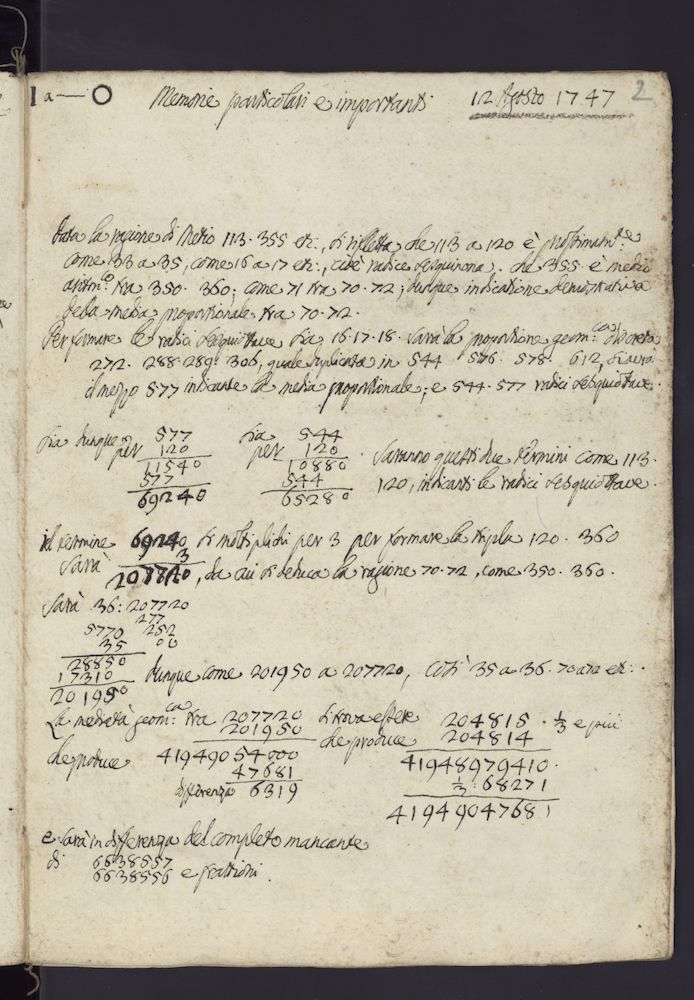 1 a — O Memorie particolari e importanti 12 Agosto 1747 2
Data la ragione di Metio 113. 355 etc:, si rifletta che 113 a 120 è prossimam.te
come 33 a 35, come 16 a 17 etc:, cioè radice sesquinona. che 355 è medio
aritm.co tra 350. 360; come 71 tra 70. 72; dunque indicatione demostrativa
della media proportionale tra 70. 72.
Per formare le radici sesquiottave sia 16. 17. 18. Sarà la proportione geom:ca discreta
272. 288. 289. 306, quale duplicata in 544 576. 578. 612, si avrà
il mezzo 577 indicante la media proportionale; e 544. 577 radici sesquiottave.
Sia dunque 577 sia 544
per 120 per 120
11540 10880 . Saranno questi due termini come 113.
577 544 120, indicanti le radici sesquiottave.
69240 65280
il termine 69240 si moltiplichi per 3 per formare la tripla 120. 360
3
Sarà 207720, da cui si deduca la ragione 70. 72, come 350. 360.
Sarà 36: 207720
277
5770 252
35 00
28850
17310 dunque come 201950 a 207720, così 35 a 36. 70 a 72 etc: .
201950
La medietà geom:ca tra 207720 si trova essere 204815 . 1/3 e più
201950 che produce 204814
che produce 41949054000 41948979410.
47681 1/3: 68271
differenza 6319 41949047681
e sarà in differenza del completo mancante
di 6638557
6638556 e frattioni.